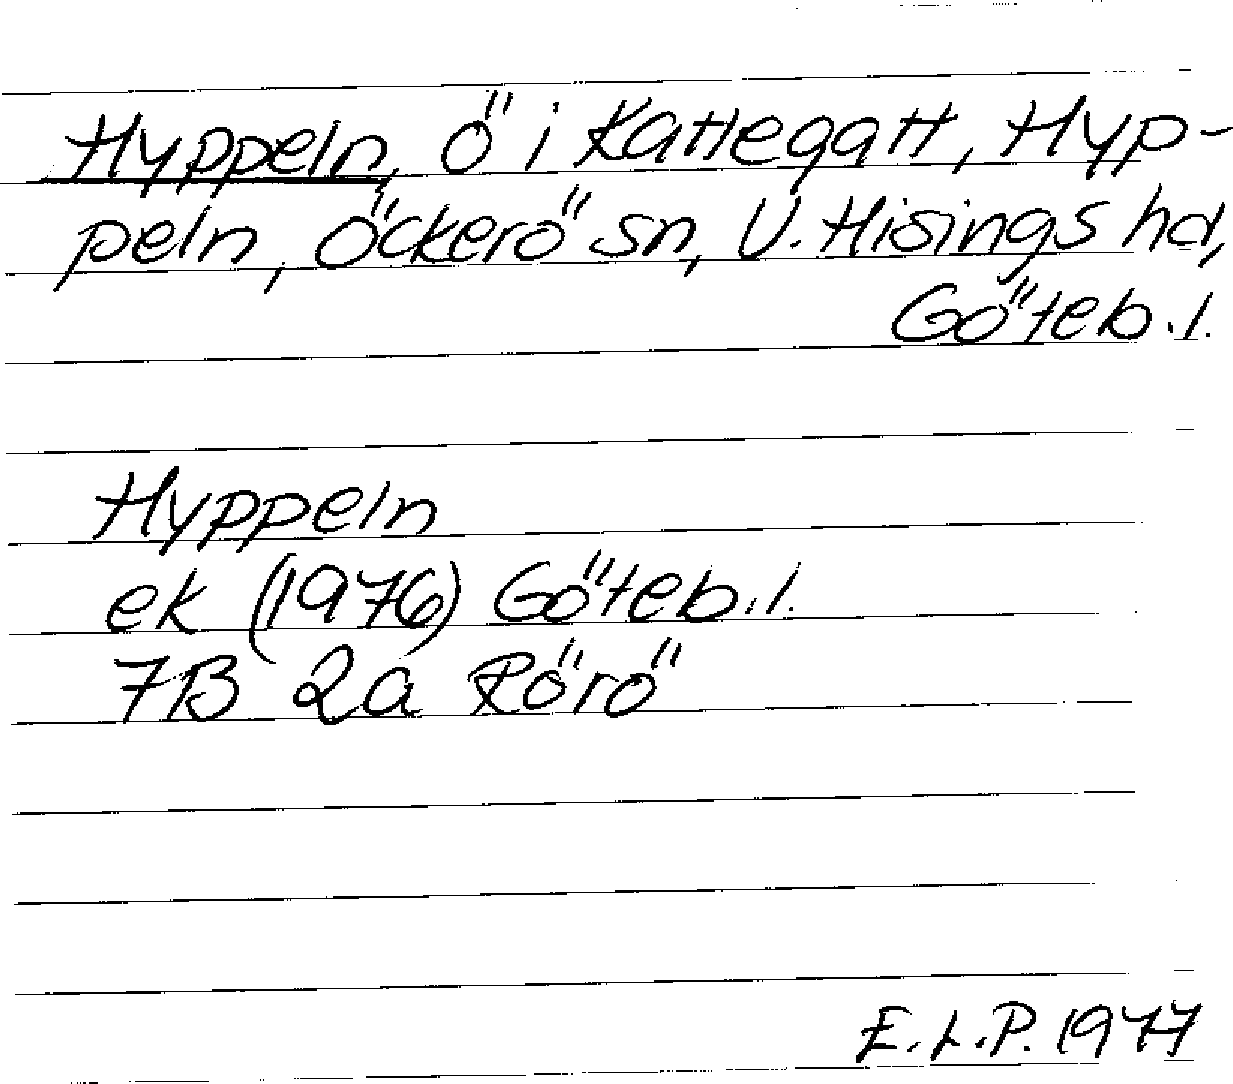 Hyppeln, ö i Kattegatt, Hyp-
peln, Öckerö sn, V. Hisings hd,
Göteb. l.
Hyppeln
ek (1976) Göteb. l.
7B 2a Rörö
E.L.P. 1977